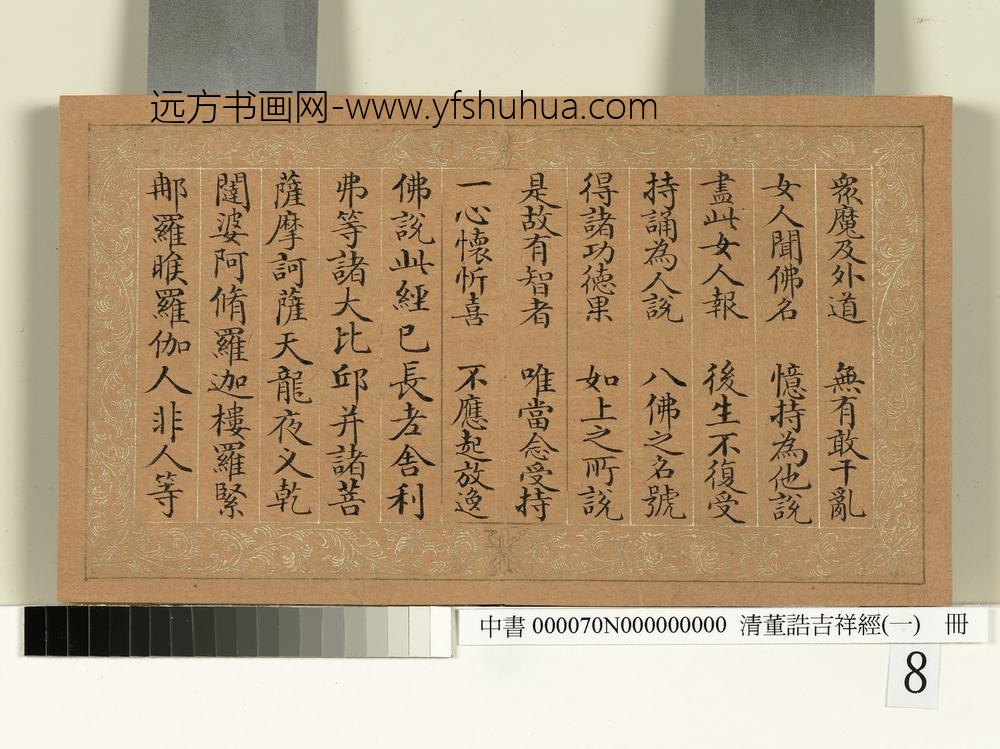 远方书画网-www.yfshuhua.com
衆魔及外道　無有敢干亂
女人聞佛名　憶持為他說
盡此女人報　後生不復受
持誦為人說　八佛之名號
得諸功德果　如上之所說
是故有智者　唯當念受持
一心懷忻喜　不應起放逸
佛說此經已長老舍利
弗等諸大比邱并諸菩
薩摩訶薩天龍夜叉乾
闥婆阿脩羅迦樓羅緊
那羅睺羅伽人非人等
中書 000070N000000000 清董誥吉祥經(一) 冊
8